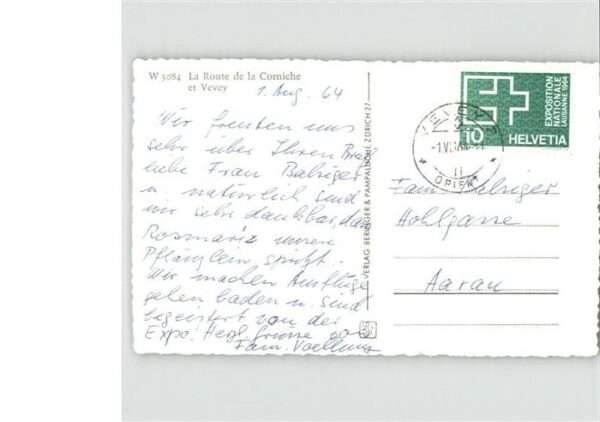 W 5084 La Route de la Corniche
et Vevey
1. Aug. 64
Wir freuten uns
sehr über Ihren Brief
liebe Frau Balsiger
u. natürlich sind
wir sehr dankbar, dass
Rosmarie unsere
Pflänzlein spritzt.
Wir machen Ausflüge
gehen baden u. sind
begeistert von der
Expo. Herzl. Grüsse
Fam.
VERLAG BERRINGER & PAMPALUCHI, ZÜRICH 27
EXPOSITION
NATIONALE
LAUSANNE 1964
10 HELVETIA
VEVEY
ORIENT
Fam. Balsiger
Hohlgasse
Aarau